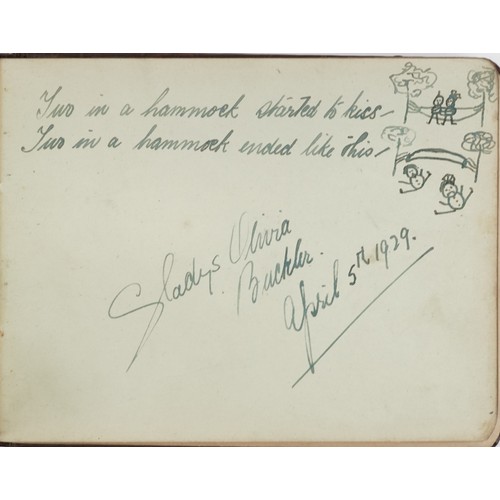 Two in a hammock started to kiss -
Two in a hammock ended like this -
Gladys Olivia
Buckler.
April 5TH 1929.